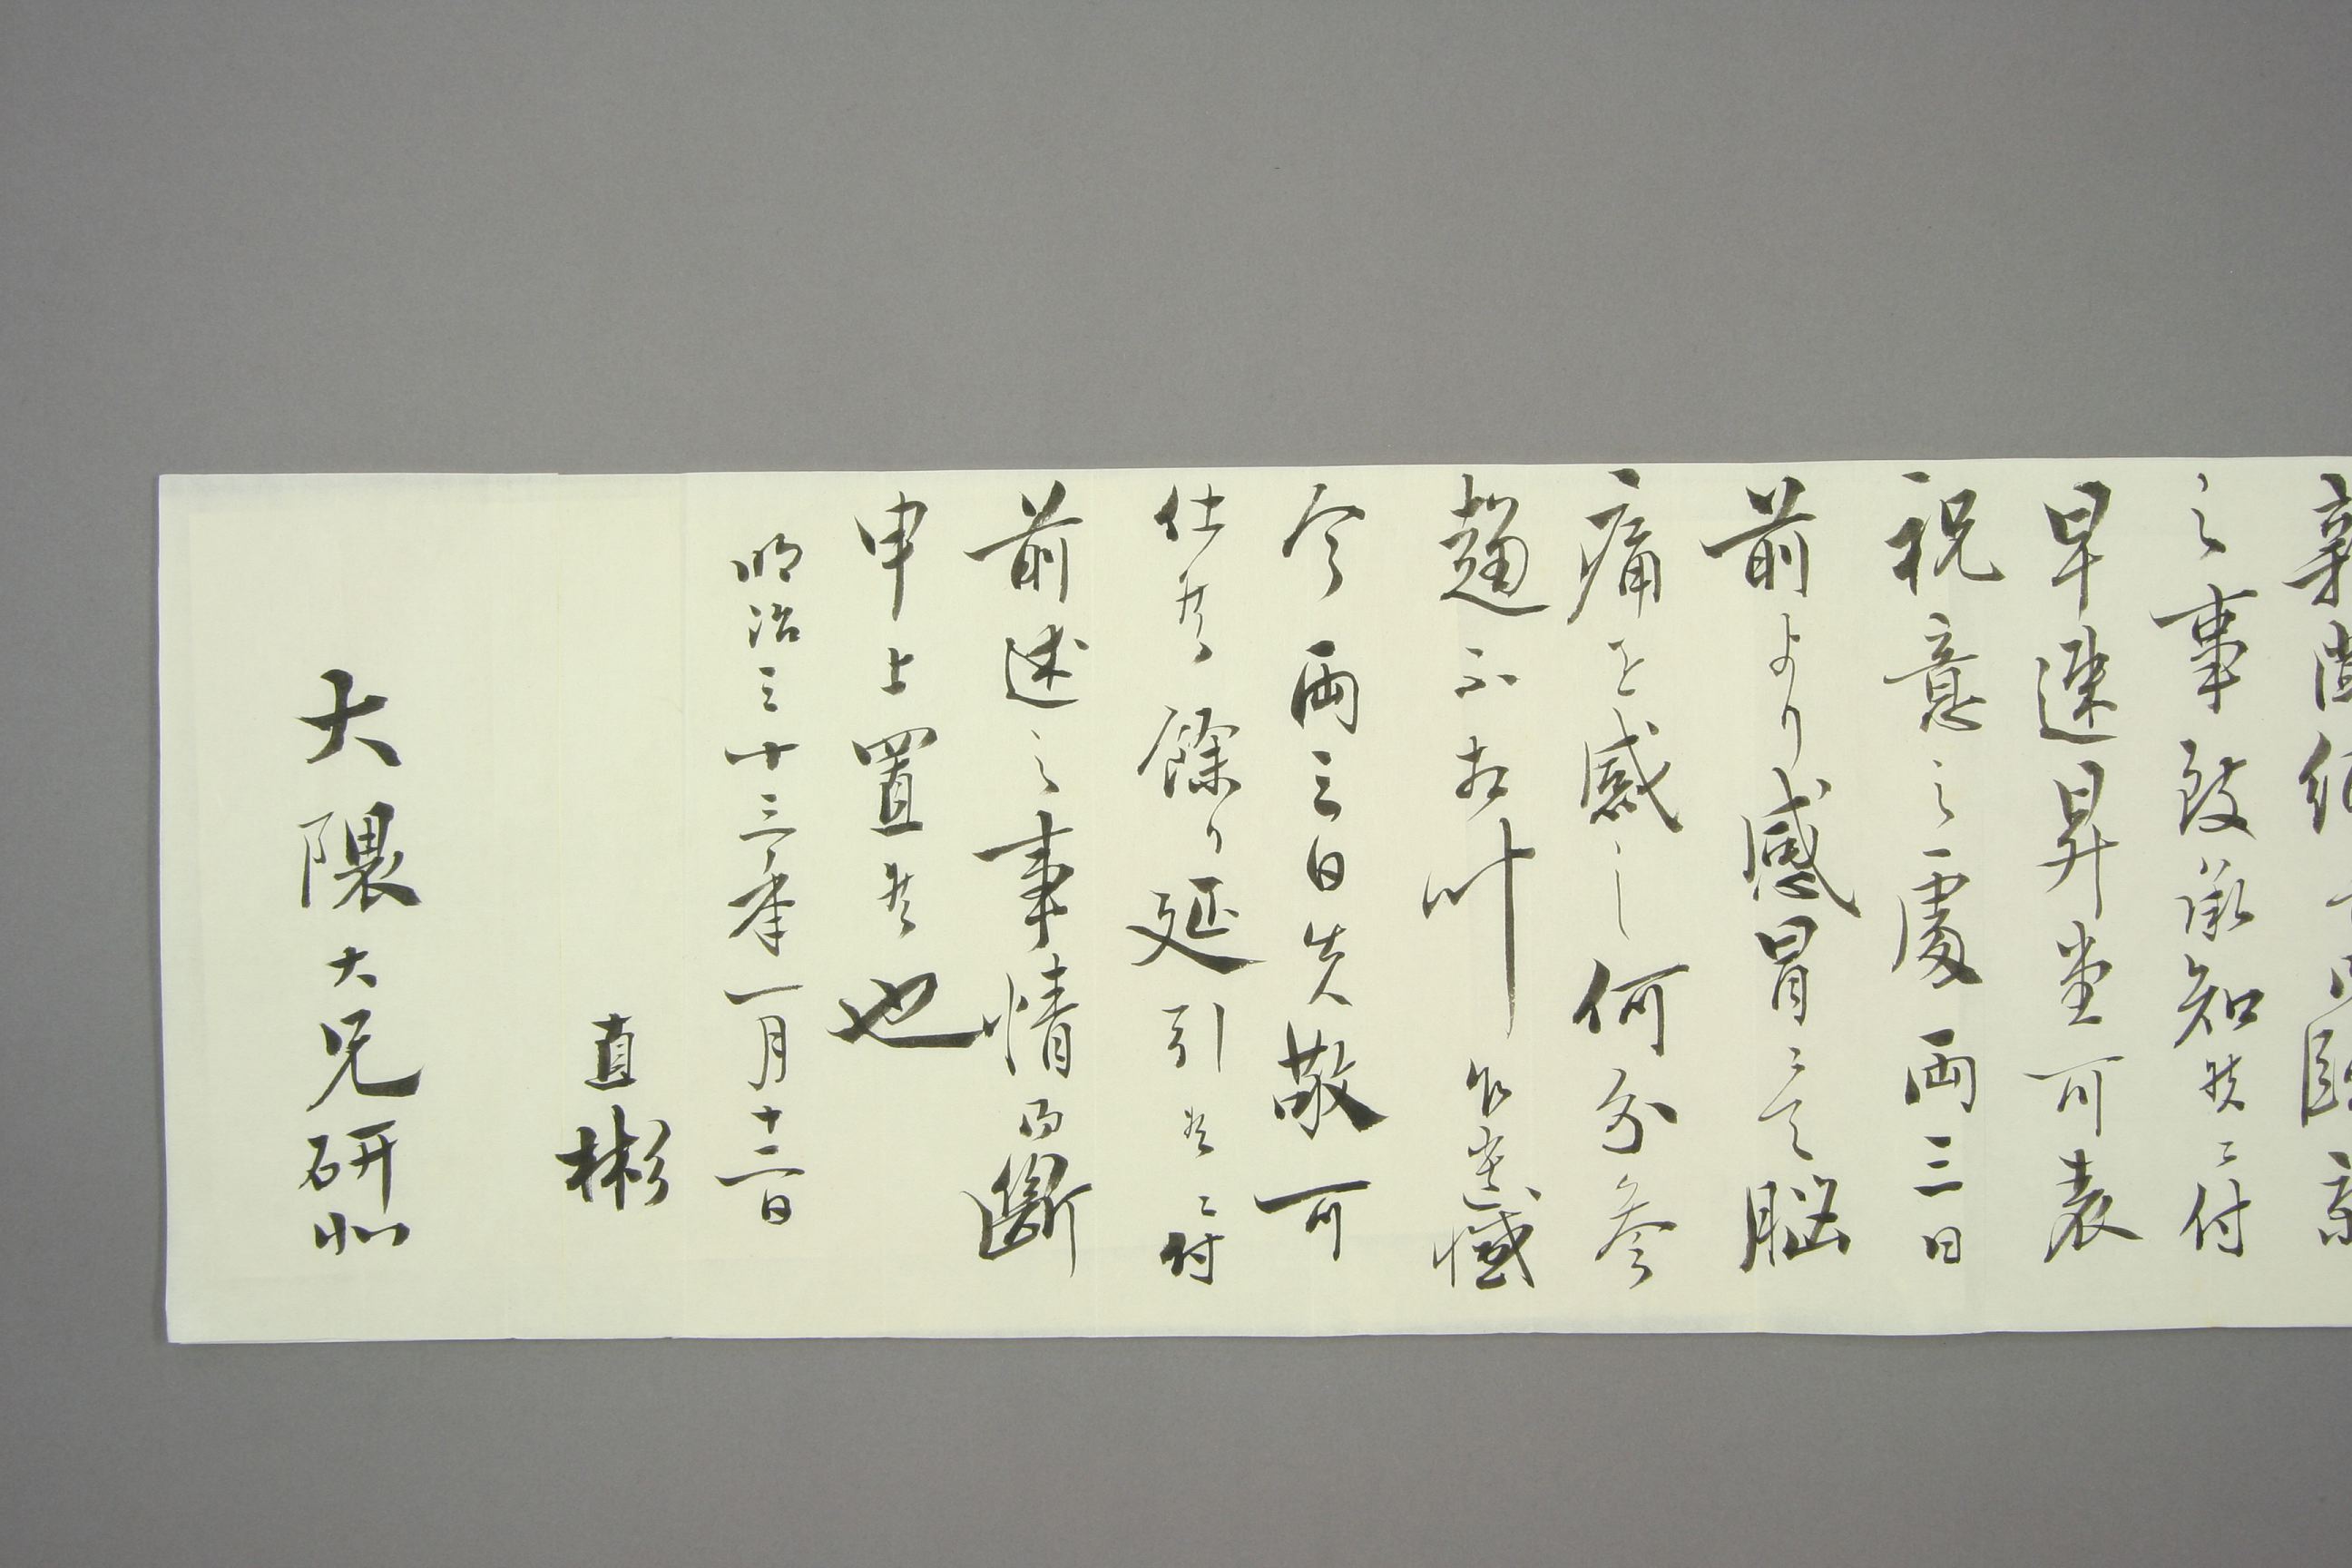 之事致承知候ニ付
早速昇堂可表
祝意之處両三日
前より感冒ニて脳
痛を感し何分参
趨不相叶乍遺憾
今両三日失敬可
仕候餘り延引候ニ付
前述之事情御斷
申上置候也
明治三十三年一月十二日
直彬
大隈大兄研北